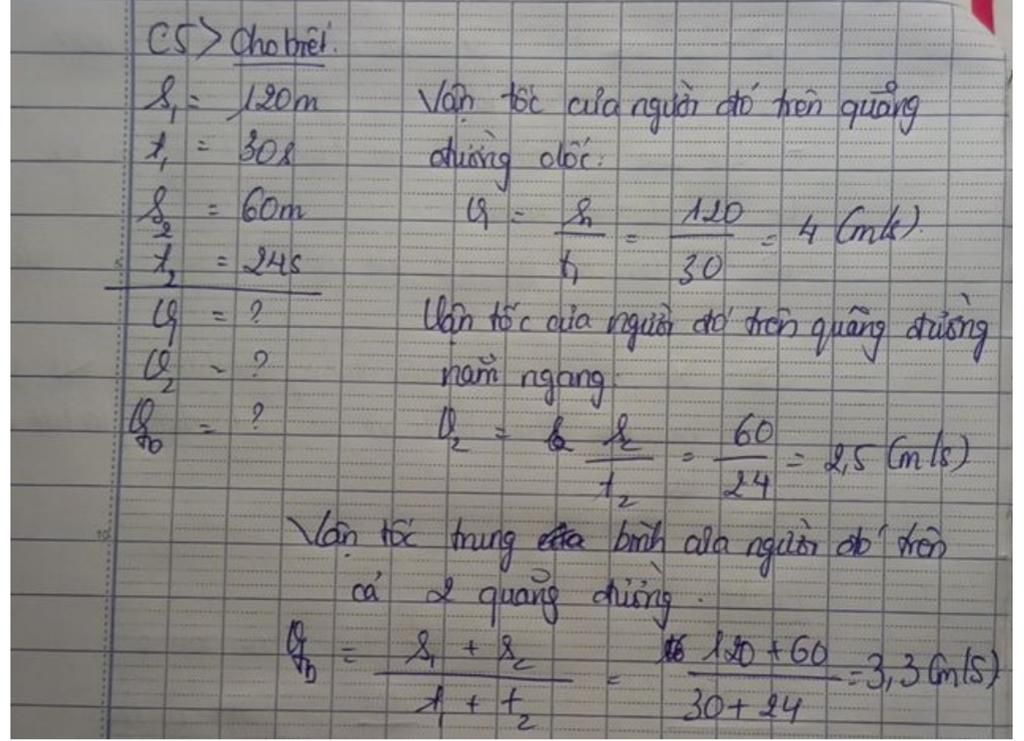 C5> Cho biết.
S₁ = 120m
t₁ = 30s
S₂ = 60m
t₂ = 24s
v₁ = ?
v₂ = ?
v_tb = ?
Vận tốc của người đó trên quãng
đường dốc:
v₁ = S₁/t₁ = 120/30 = 4 (m/s).
Vận tốc của người đó trên quãng đường
nằm ngang:
v₂ = S₂/t₂ = 60/24 = 2,5 (m/s)
Vận tốc trung bình của người đó trên
cả 2 quãng đường.
v_tb = (S₁ + S₂)/(t₁ + t₂) = (120 + 60)/(30 + 24) = 3,3 (m/s)